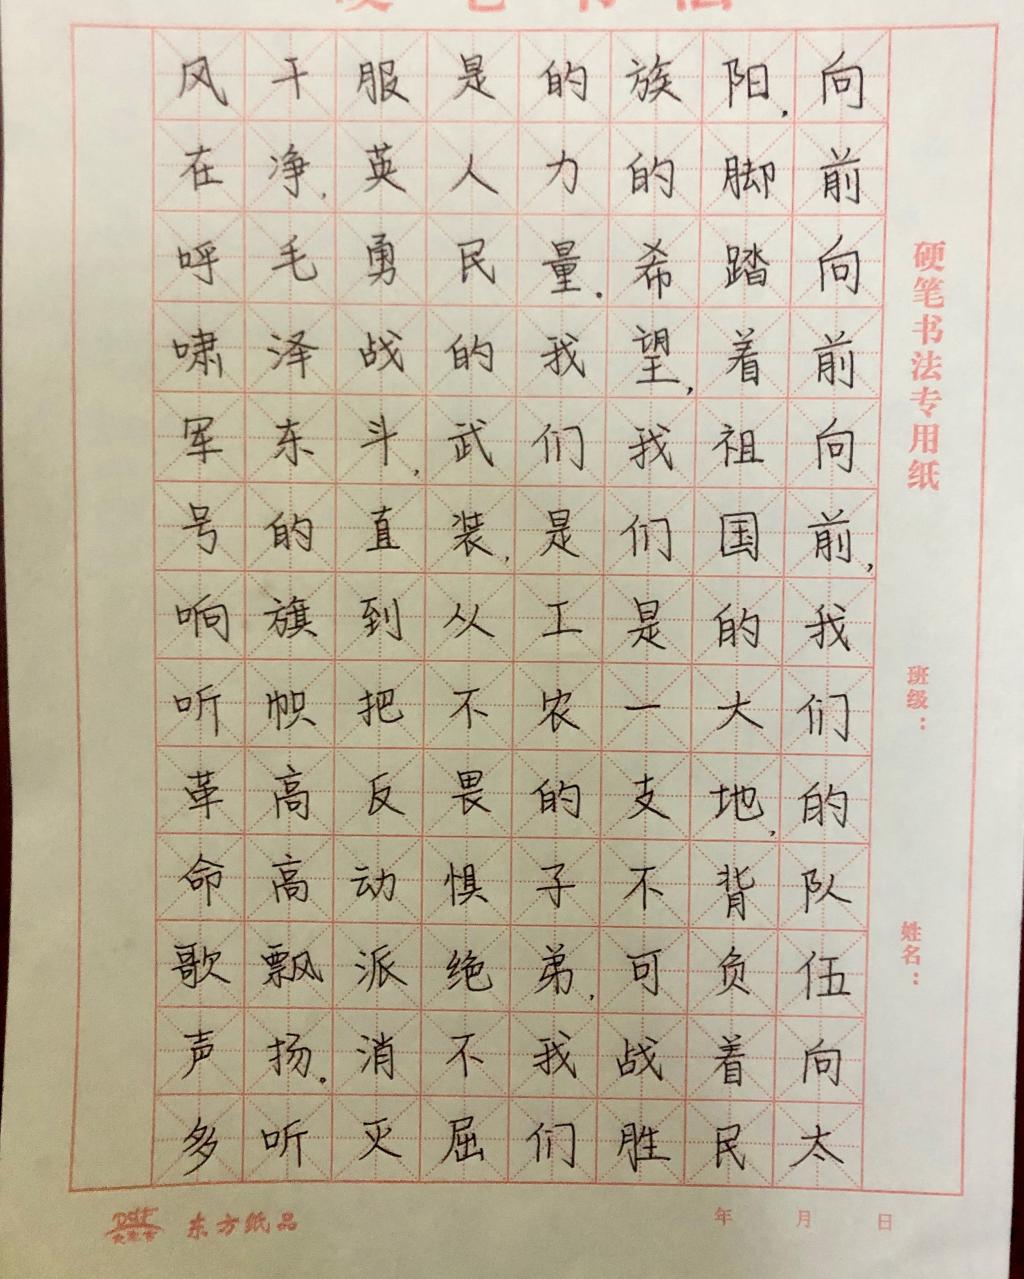 向前向前向前,我们的队伍向太
阳,脚踏着祖国的大地,背负着民
族的希望,我们是一支不可战胜
的力量.我们是工农的子弟,我们
是人民的武装,从不畏惧绝不屈
服英勇战斗,直到把反动派消灭
干净,毛泽东的旗帜高高飘扬.听
风在呼啸军号响听革命歌声多
硬笔书法专用纸
班级：
姓名：
东方纸品
年 月 日